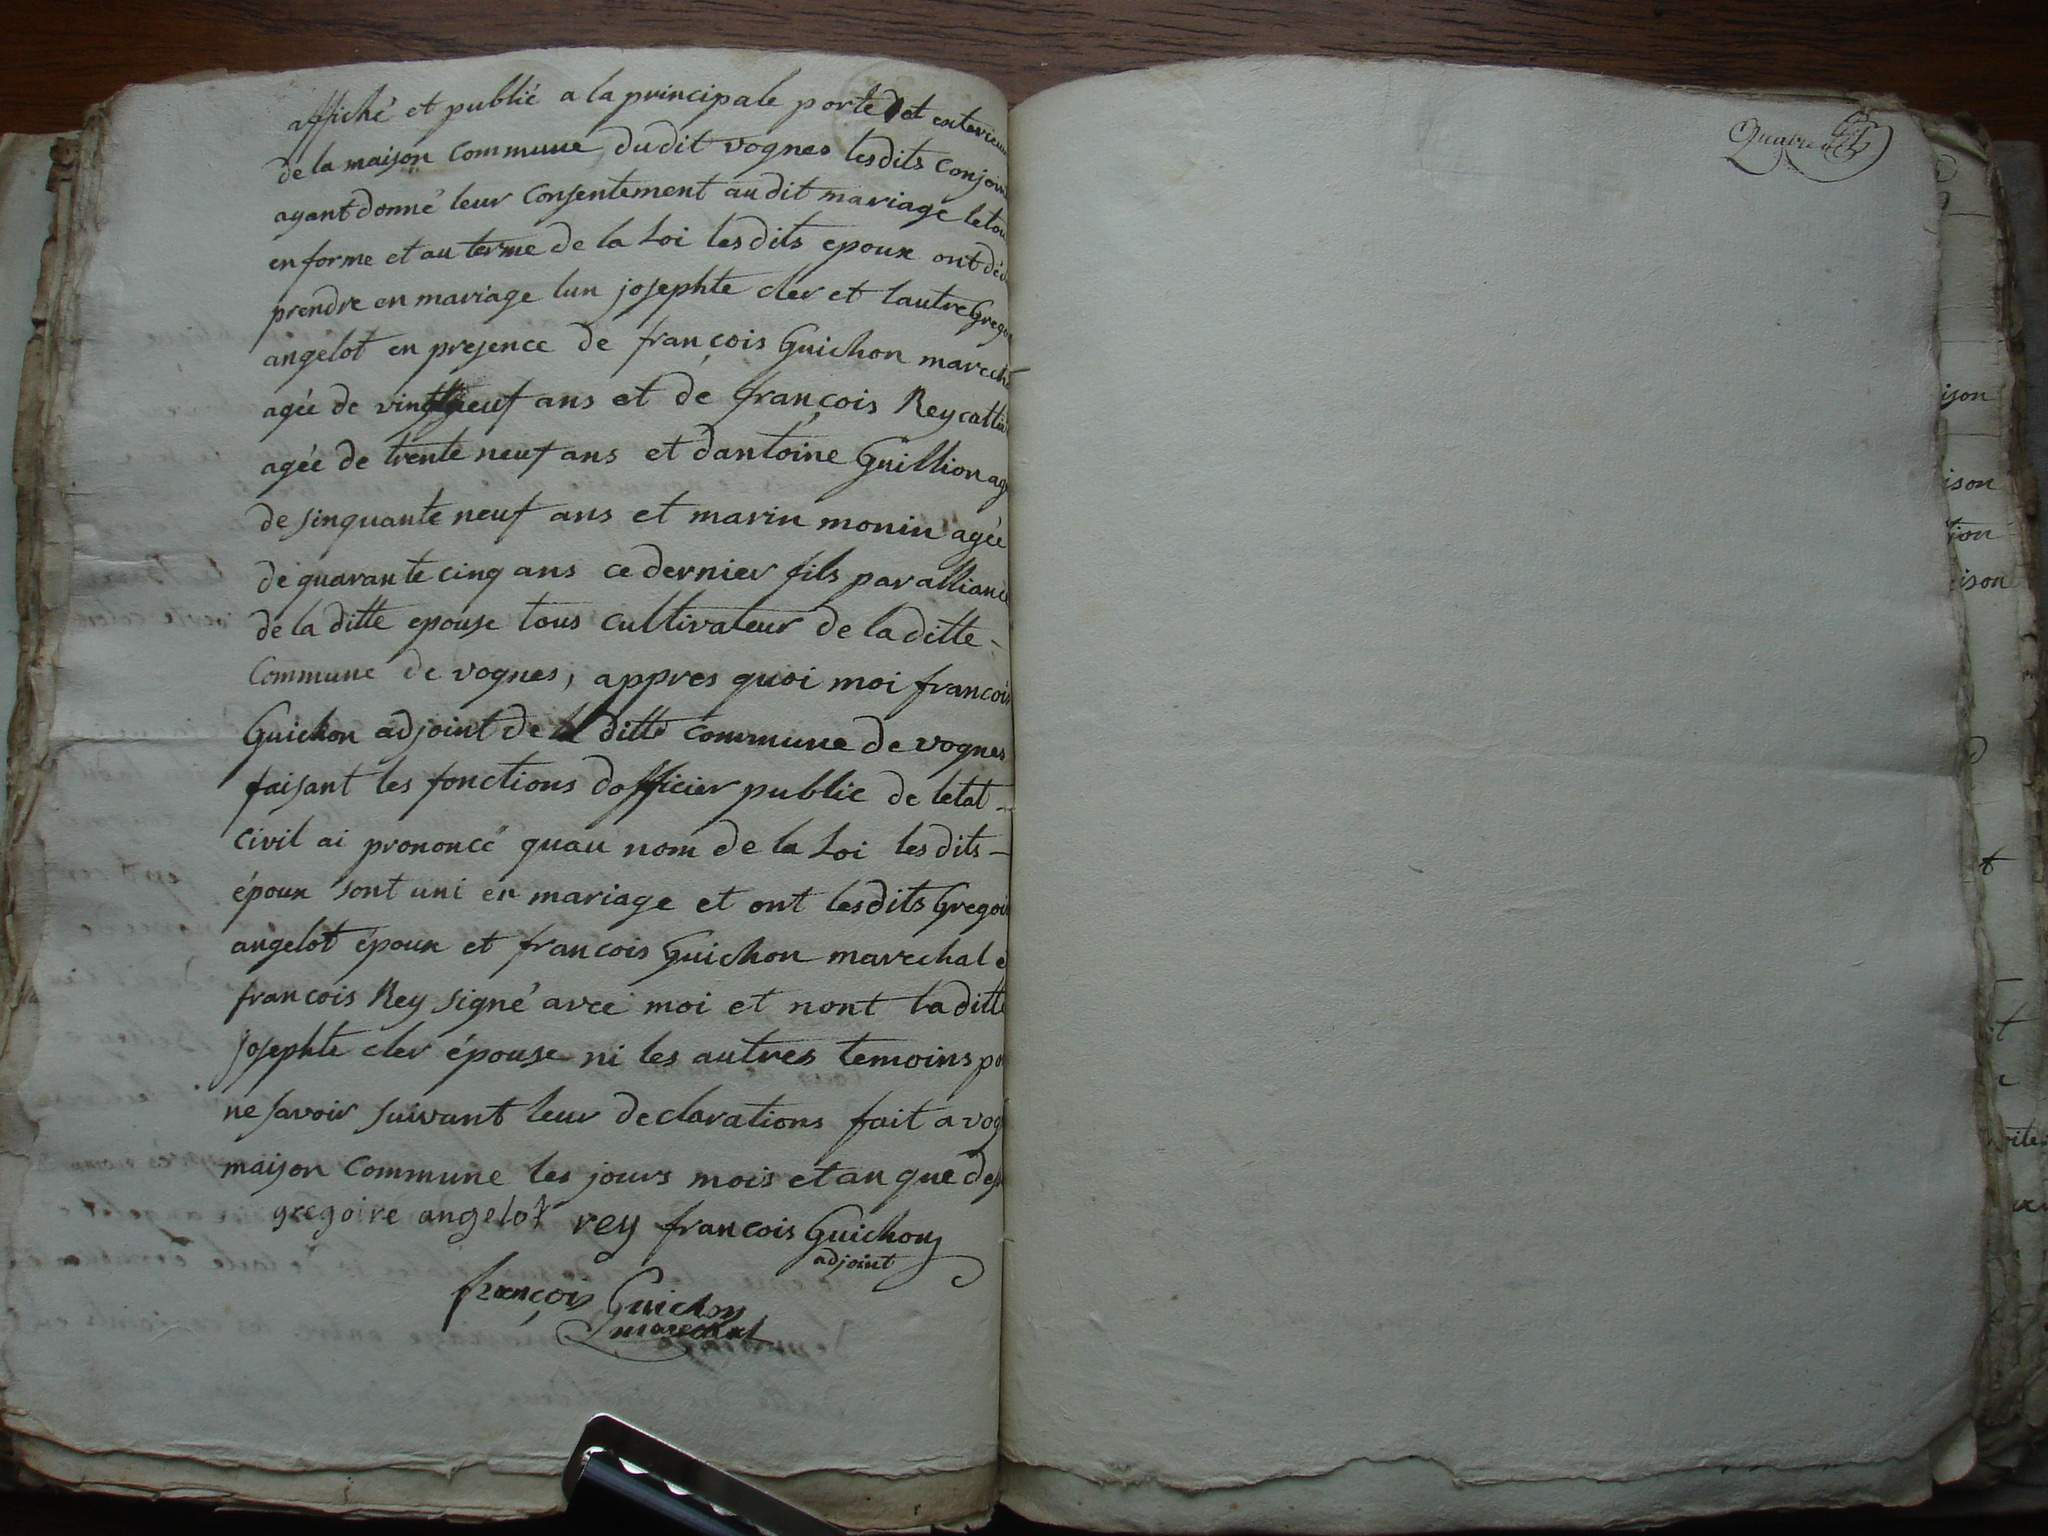 affiché et publié a la principale porte et exterieur
de la maison commune, dudit vognes lesdits conjoin
ayant donné leur consentement audit mariage le tou
en forme et au terme de la Loi lesdits epoux ont dé
prendre en mariage lun josephte cler et lautre Grego
angelot en presence de françois Guichon marech
agée de vingt neuf ans et de françois Rey
agée de trente neuf ans et dantoine Guillion ag
de sinquante neuf ans et marin monin agée
de quarante cinq ans ce dernier fils par alliance
de la ditte epouse tous cultivateur de la ditte -
Commune de vognes, appres quoi moi francois
Guichon adjoint de la ditte commune de vognes
faisant les fonctions dofficier public de letat -
civil ai prononcé quau nom de la Loi les dits -
époux sont uni en mariage et ont lesdits Gregoi
angelot époux et francois Guichon marechal e
francois Rey signé avec moi et nont la ditte
josephte cler épouse ni les autres temoins po
ne savoir suivant leur declarations fait a vog
maison Commune les jours mois et an que des
gregoire angelot rey francois Guichon
adjoint
françois Guichon
marechal
ison
ison
tion
ison